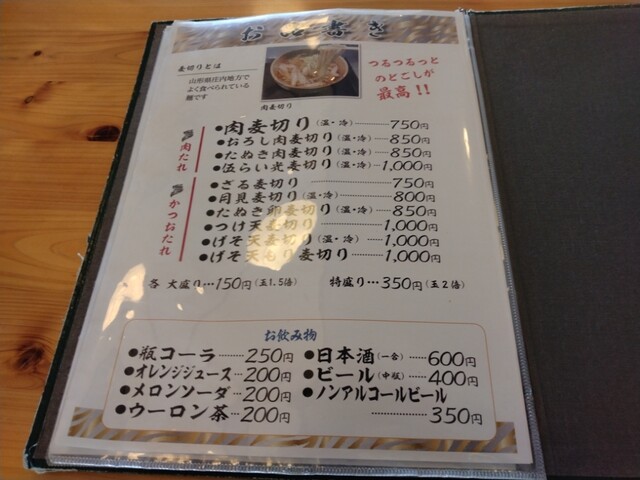 おしながき
麦切りとは
山形県庄内地方で
よく食べられている
麺です
肉麦切り
つるつるっと
のどごしが
最高!!
肉たれ
●肉麦切り(温・冷) 750円
●おろし肉麦切り(温・冷) 850円
●たぬき肉麦切り(温・冷) 850円
●伍らい光麦切り(温・冷) 1,000円
かつおたれ
●ざる麦切り 750円
●月見麦切り(温・冷) 800円
●たぬき卵麦切り(温・冷) 850円
●つけ天麦切り 1,000円
●げそ天麦切り(温・冷) 1,000円
●げそ天もり麦切り 1,000円
各 大盛り…150円(玉1.5倍) 特盛り…350円(玉2倍)
お飲み物
●瓶コーラ 250円
●オレンジジュース 200円
●メロンソーダ 200円
●ウーロン茶 200円
●日本酒(一合) 600円
●ビール(中瓶) 400円
●ノンアルコールビール
350円